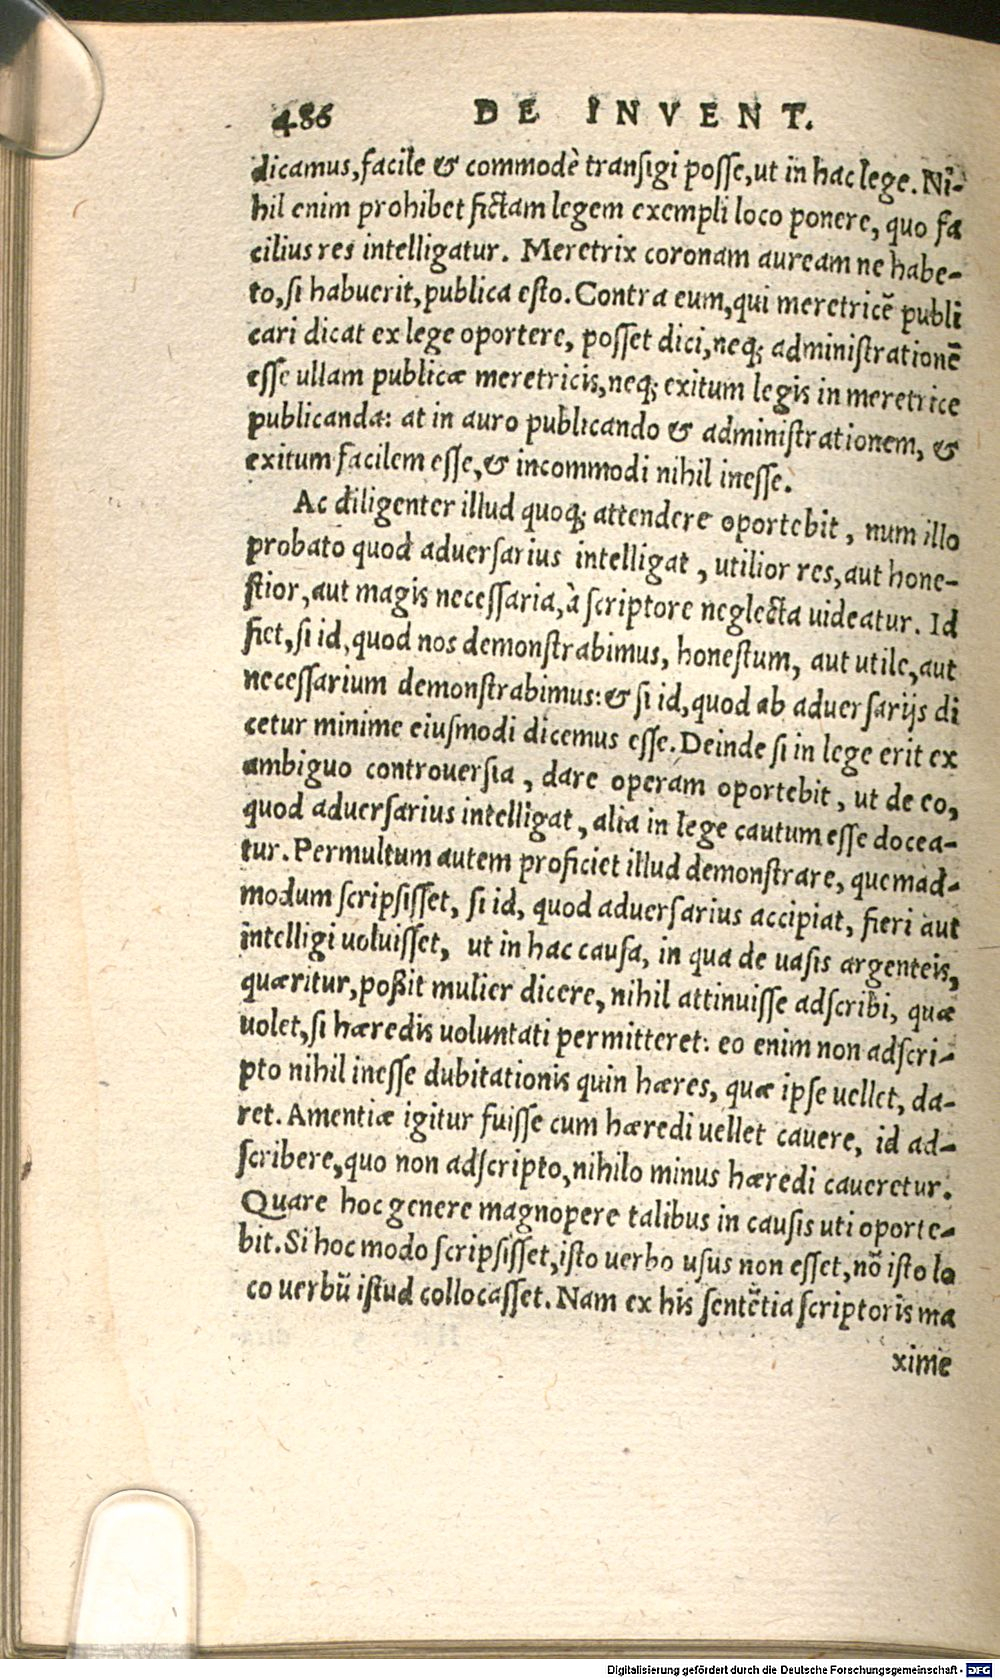 486 DE INVENT.
dicamus, facile & commodè transigi posse, ut in hac lege. Ni-
hil enim prohibet fictam legem exempli loco ponere, quo fa
cilius res intelligatur. Meretrix coronam auream ne habe-
to, si habuerit, publica esto. Contra eum, qui meretricē publi
cari dicat ex lege oportere, posset dici, neq; administrationē
esse ullam publicæ meretricis, neq; exitum legis in meretrice
publicanda: at in auro publicando & administrationem, &
exitum facilem esse, & incommodi nihil inesse.
Ac diligenter illud quoq; attendere oportebit, num illo
probato quod aduersarius intelligat, utilior res, aut hone-
stior, aut magis necessaria, à scriptore neglecta uideatur. Id
fiet, si id, quod nos demonstrabimus, honestum, aut utile, aut
necessarium demonstrabimus: & si id, quod ab aduersarijs di
cetur minime eiusmodi dicemus esse. Deinde si in lege erit ex
ambiguo controuersia, dare operam oportebit, ut de eo,
quod aduersarius intelligat, alia in lege cautum esse docea-
tur. Permultum autem proficiet illud demonstrare, quemad-
modum scripsisset, si id, quod aduersarius accipiat, fieri aut
intelligi uoluisset, ut in hac causa, in qua de uasis argenteis,
quæritur, poßit mulier dicere, nihil attinuisse adscribi, quæ
uolet, si hæredis uoluntati permitteret: eo enim non adscri-
pto nihil inesse dubitationis quin hæres, quæ ipse uellet, da-
ret. Amentiæ igitur fuisse cum hæredi uellet cauere, id ad-
scribere, quo non adscripto, nihilo minus hæredi caueretur.
Quare hoc genere magnopere talibus in causis uti oporte-
bit. Si hoc modo scripsisset, isto uerbo usus non esset, nō isto lo
co uerbū istud collocasset. Nam ex his sentētia scriptoris ma
xime
Digitalisierung gefördert durch die Deutsche Forschungsgemeinschaft - DFG